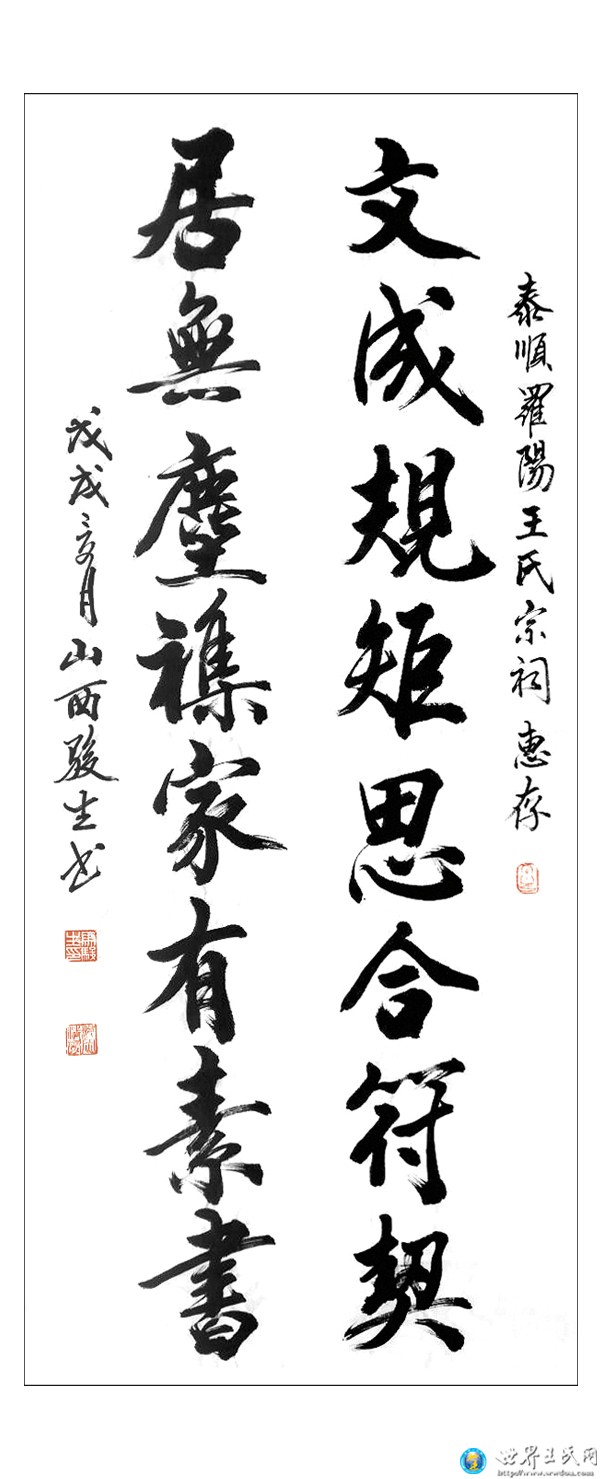 泰順羅陽王氏宗祠 惠存
文成規矩思合符契
居無塵襍家有素書
戊戌亥月山西駿生书
世界王氏网